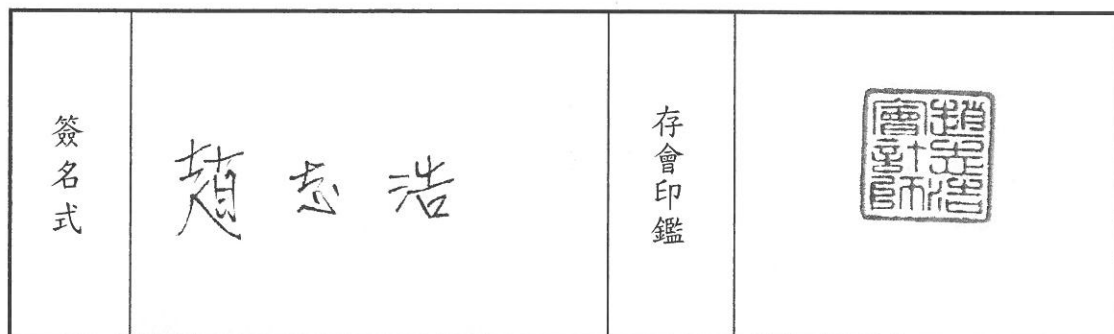 簽名式
趙志浩
存會印鑑
趙志浩
會計師